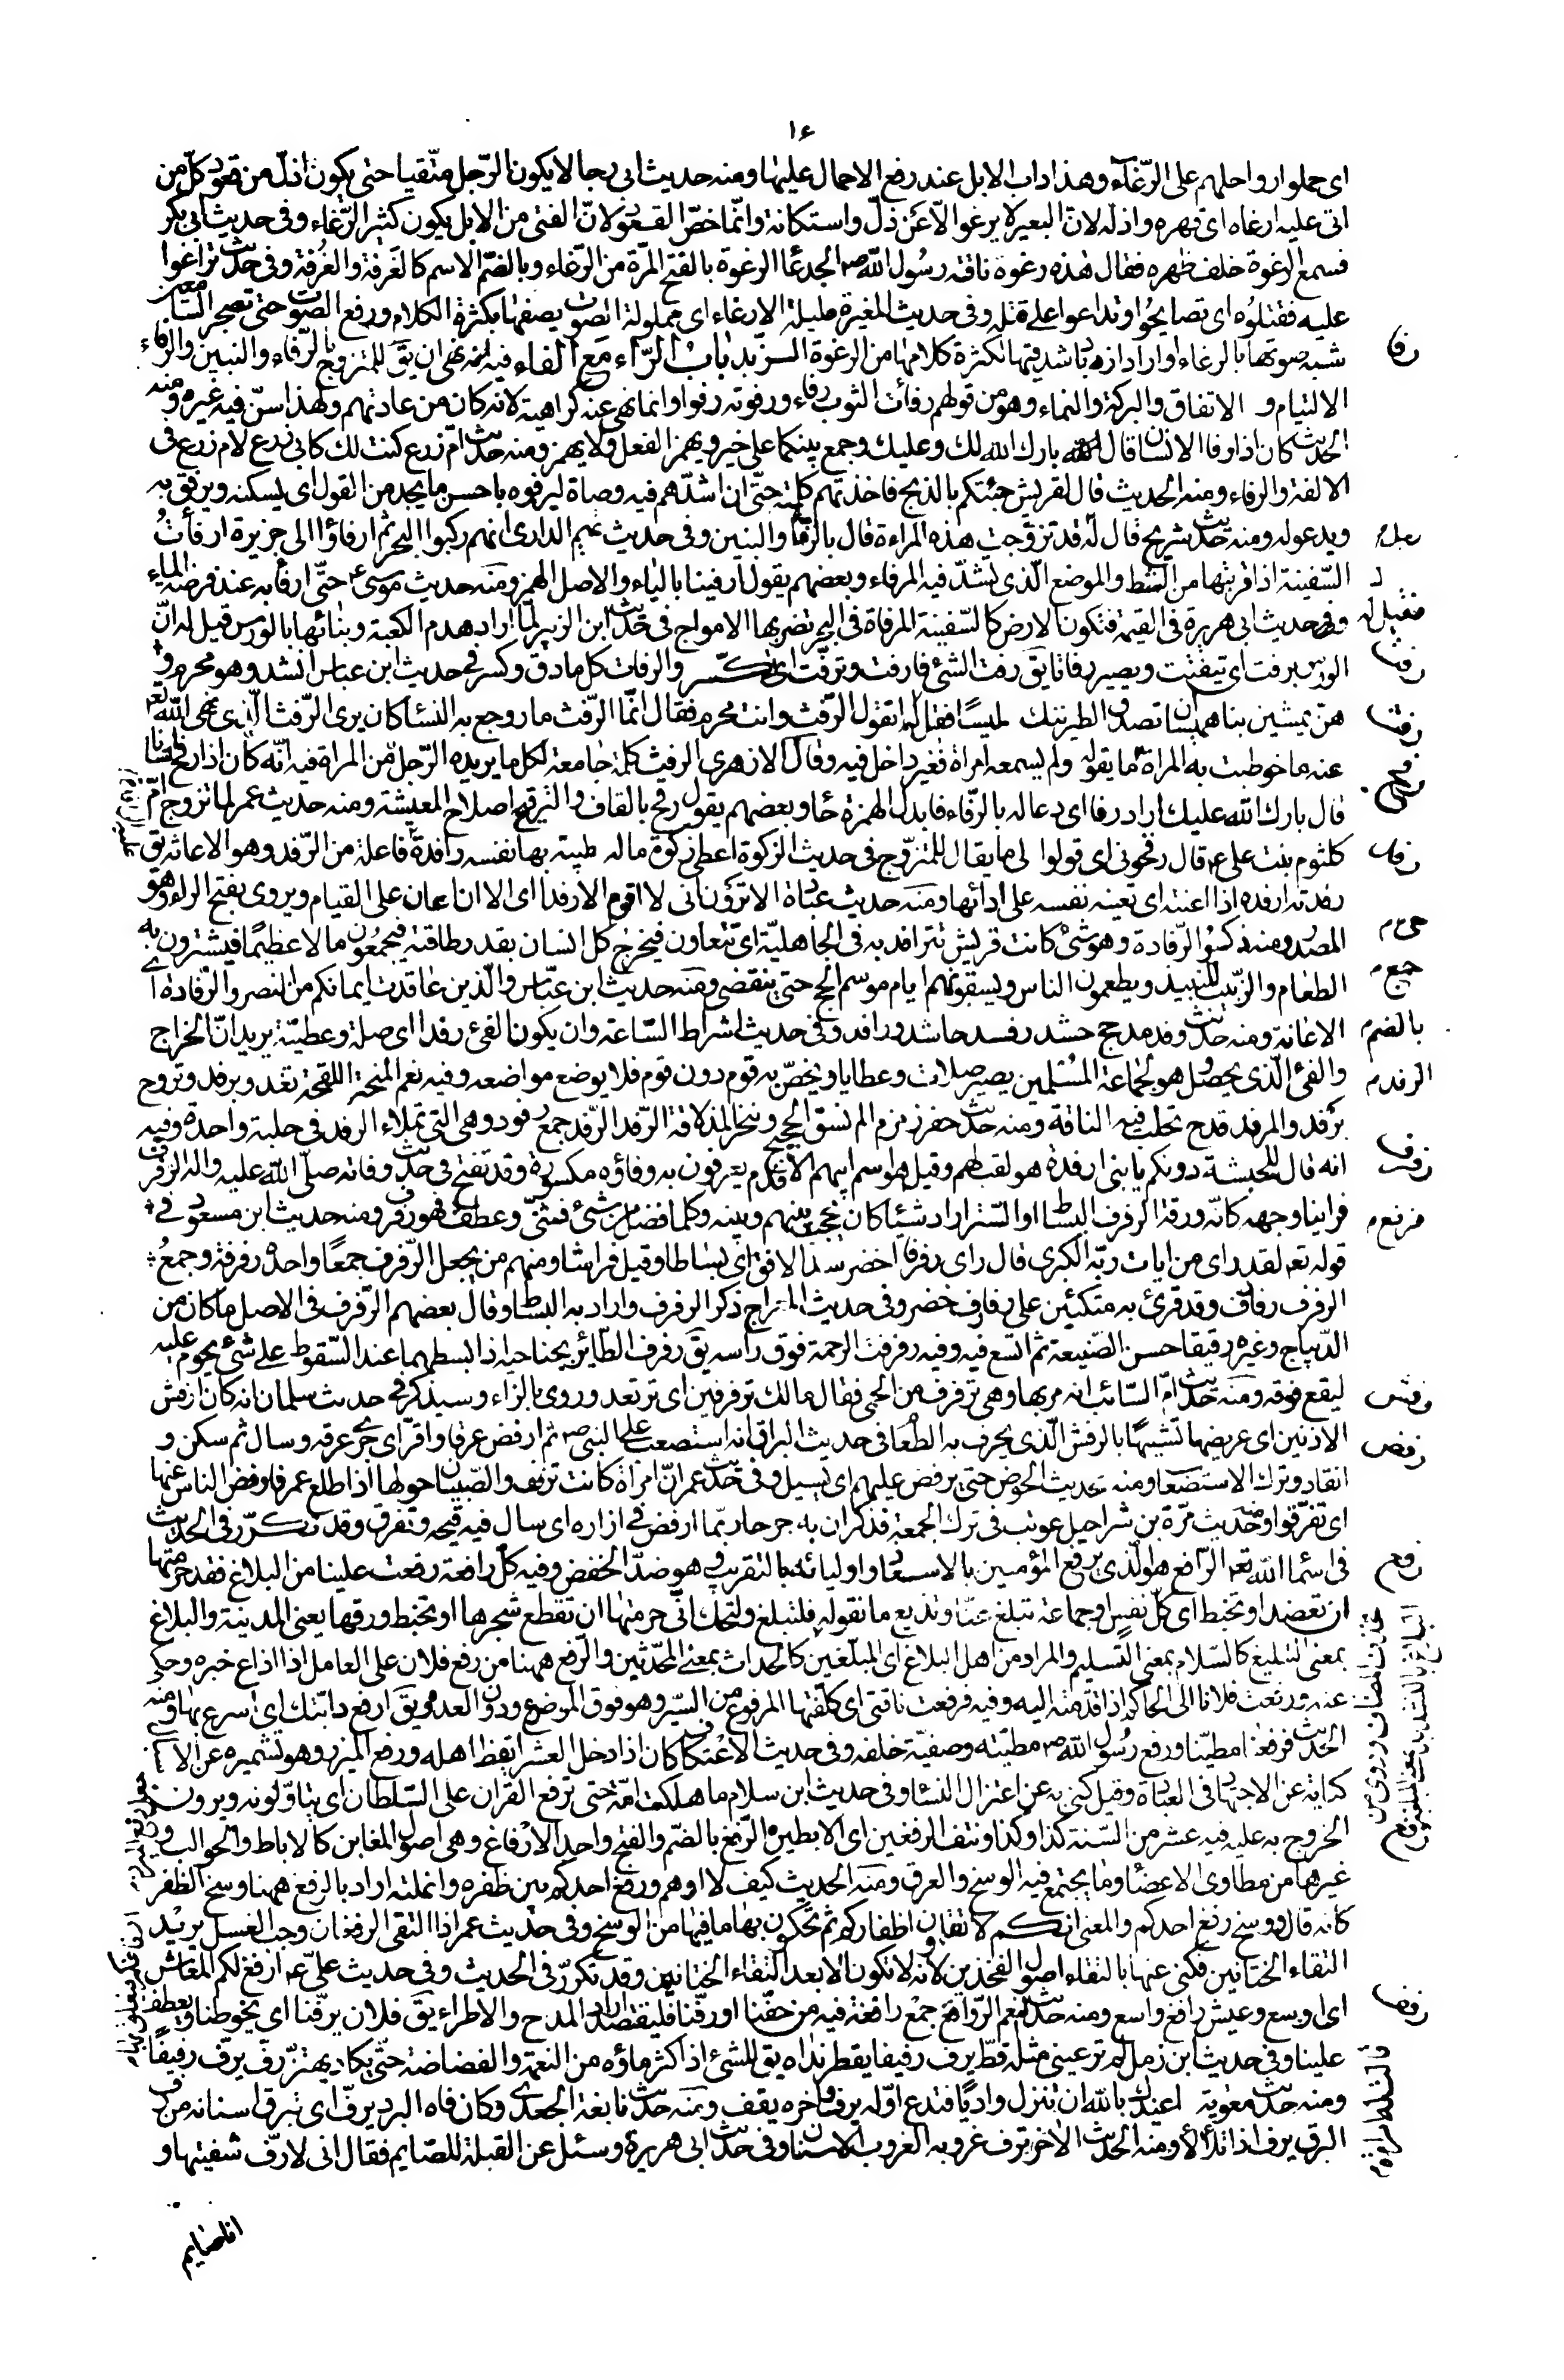 ١٤
اى حملوا رواحلهم على الرّغاء وهذا داب الابل عند رفع الاحمال عليها ومنه حديث ابى رجا لا يكون الرّجل متّقيا حتى يكون اذلّ من قعود كلّ من
اتى عليه ارغاه اى قهره واذله لانّ البعير لا يرغو الّا عن ذلّ واستكانة وانّما خصّ القعود لانّ الفتى من الابل يكون كثير الرّغاء وفى حديث ابى بكر
فسمع الرغوة خلف ظهره فقال هذه رغوة ناقة رسول اللّه ص الجدعا الرغوة بالفتح المرّة من الرّغاء وبالضّم الاسم كالغَرفة والغُرفة وفى حديث تراغوا
عليه فقتلوه اى تصايحوا وتداعوا على قتله وفى حديث المغيرة مليلة الارغاء اى مملولة الصّوت يصفها بكثرة الكلام ورفع الصّوت حتى تضجر السّامعين
شبه صوتها بالرغاء او اراد ازباد شدقيها لكثرة كلامها من الرغوة الزّبد باب الرّاء مع الفاء فيه انه نهى ان يق للمتزوج بالرّفاء والبنين والرّفاء
الالتيام و الاتفاق والبركة والنماء وهو من قولهم رفأت الثوب رفاء ورفوته رفوا وانما نهى عنه كراهية لانه كان من عادتهم ولهذا سنّ فيه غيره ومنه
الحديث كان اذا رفا الانسان قال بارك الله لك وعليك وجمع بينكما على خير ويهمز الفعل ولا يهمز ومنه حديث امّ زرع كنت لك كابى زرع لام زرع فى
الالفة والرفاء ومنه الحديث قال لقريش جئتكم بالذبح فاخذتهم كلمته حتّى ان اشدّهم فيه وصاة ليرفوه باحسن ما يجد من القول اى يسكنه ويرفق به
ويدعو له ومنه حديث شريح قال له قد تزوّجت هذه المراة قال بالرّفاء والبنين وفى حديث تميم الدارى انهم ركبوا البحر ثم ارفاؤا الى جزيرة ارفأت
السّفينة اذا قربتها من الشط والموضع الّذى تشدّ فيه المرفاء وبعضهم يقول ارفينا بالياء والاصل الهمز ومنه حديث موسى ع حتّى ارفأ به عند فرضة الماء
وفى حديث ابى هريرة فى القيمة فتكون الارض كالسّفينة المرفاة فى البحر تضربها الامواج فى حديث ابن الزبير لمّا اراد هدم الكعبة وبنائها بالورس قيل له انّ
الورس يرفت اى يتفتّت ويصير رفاتا يق رفت الشئ فارفت وترفّت اى تكسّر والرفات كل ما دقّ وكسر فى حديث ابن عباس انشد وهو محرم
هنّ يمشين بنا هميسا ان تصدق الطير ننك لميسا فقيل له اتقول الرّفث وانت محرم فقال انّما الرّفث ما روجع به النّساء كان يرى الرّفث الّذى نهى اللّه
عنه ما خوطبت به المراة فاما يقوله ولم يسمعه امراة فغير داخل فيه وقال الازهرى الرفث كلمة جامعة لكل ما يريده الرّجل من المراة فيه انّه كان اذا رفح انسانا
قال بارك اللّه عليك اراد رفا اى دعا له بالرّفاء فابدل الهمزة حاء وبعضهم يقول رقّح بالقاف والترقيح اصلاح المعيشة ومنه حديث عمر لما تزوج امّ
كلثوم بنت على ع قال رفحونى اى قولوا لى ما يقال للمتزوّج فى حديث الزكوة اعطى زكوة ماله طيّبة بها نفسه رافدة فاعلة من الرّفد وهو الاعانة يق
رفدته ارفده اذا اعنته اى تعينه نفسه على ادائها ومنه حديث عبادة الا ترون انى لا اقوم الا رفدا اى الا ان اعان على القيام ويروى بفتح الراء وهو
المصدر ومنه ذكر الرّفادة وهو شئ كانت قريش تترافد به فى الجاهليّة اى تتعاون فيخرج كل انسان بقدر طاقته فيجمعون مالا عظيما فيشترون به
الطعام والزّبيب للنبيذ ويطعمون الناس ويسقونهم ايام موسم الحج حتى ينقضى ومنه حديث ابن عبّاس والّذين عاقدت ايمانكم من النصر والرّفادة اى
الاعانة ومنه حديث وفد مذحج حشد رفد حاشد ورافد وفى حديث اشراط السّاعة وان يكون الفئ رفدا اى صلة وعطيّة يريد انّ الخراج
والفئ الّذى يحصل هو لجماعة المسلمين يصير صلات وعطايا ويخصّ به قوم دون قوم فلا يوضع مواضعه وفيه نعم المنحة اللقحة تغدو برفد وتروح
برفد والمرفد قدح تحلب فيه الناقة ومنه حديث حفر زمزم الم نسق الحجيج وننحر المذلاقة الرّفد الرّفد جمع رفود وهى التى تملاء الرفد فى حلبة واحدة وفيه
انه قال للحبشة دونكم يا بنى ارفدة هو لقب لهم وقيل هو اسم ابيهم الاقدم يعرفون به وفاؤه مكسورة وقد تفتح فى حديث وفاته صلّى اللّه عليه واله فرفع الرّفرف
فراينا وجهه كانّه ورقة الرفرف البساط او السّتر اراد شيئا كان يحجب بينهم وبينه وكلما فضل من شئ فثنى وعطف فهو رفرف ومنه حديث ابن مسعود فى
قوله تعه لقد راى من ايات ربّه الكبرى قال راى رفرفا اخضر سد الافق اى بساطا وقيل فراشا ومنهم من يجعل الرّفرف جمعا واحده رفرفة وجمع
الرفرف رفارف وقد قرئ به متكئين على رفارف خضر وفى حديث المعراج ذكر الرفرف واراد به البساط وقال بعضهم الرّفرف فى الاصل ما كان من
الدّيباج وغيره رقيقا حسن الصّنيعة ثم اتّسع فيه وفيه رفرفت الرحمة فوق رأسه يق رفرف الطّائر بجناحيه اذا بسطهما عند السّقوط على شئ يحوم عليه
ليقع فوقه ومنه حديث امّ السّائب انه مر بها وهى ترفرف من الحمى فقال مالك ترفرفين اى ترتعد وروى بالزاء وسيذكر فى حديث سلمان انه كان ارفش
الاذنين اى عريضهما تشبيها بالرفش الّذى يجرف به الطّعام فى حديث البراق انه استصعب على النبى ص ثم ارفض عرقا واقرّ اى جرى عرقه وسال ثم سكن و
انقاد وترك الاستصعاب ومنه حديث الحوض حتى يرفض عليهم اى يسيل وفى حديث عمر انّ امراة كانت تزفن والصّبيان حولها اذ طلع عمر فارفض الناس عنها
اى تفرّقوا وحديث مرّة بن شراحيل عوتب فى ترك الجمعة فذكر ان به جرحا ربّما ارفض فى ازاره اى سال فيه قيحه وتفرق وقد تكرّر فى الحديث
فى اسماء اللّه تعه الرّافع هو الّذى يرفع المؤمنين بالاسعاد واوليائه بالتقريب وهو ضدّ الخفض وفيه كلّ رافعة رفعت علينا من البلاغ فقد حرّمتها
ان تعضد او تخبط اى كلّ نفس او جماعة تبلغ عنّا وتذيع ما نقوله فلتبلغ ولتحك انّى حرمتها ان تقطع شجرها او تخبط ورقها يعنى المدينة والبلاغ
بمعنى التبليغ كالسّلام بمعنى التّسليم والمراد من اهل البلاغ اى المبلّغين كالحداث بمعنى المحدّثين والرّفع ههنا من رفع فلان على العامل اذا اذاع خبره وحكى
عنه ورفعت فلانا الى الحاكم اذا قدمته اليه وفيه فرفعت ناقتى اى كلّفتها المرفوع من السّير وهو فوق الموضوع ودون العدو ويق ارفع دابّتك اى اسرع بها ومنه
الحديث فرفعنا مطيّنا ورفع رسول اللّه ص مطيّته وصفيّة خلفه وفى حديث الاعتكاف كان اذا دخل العشر ايقظ اهله ورفع المئزر وهو تشميره عن الا
كناية عن الاجتهاد فى العبادة وقيل كنى به عن اعتزال النساء وفى حديث ابن سلام ما هلكت امّة حتى ترفع القران على السّلطان اى يتاوّلونه ويرون
الخروج به عليه فيه عشر من السّنة كذا وكذا ونتف الرفغين اى الابطين الرّفغ بالضّم والفتح واحد الارفاغ وهى اصول المغابن كالاباط والحوالب و
غيرها من مطاوى الاعضاء وما يجتمع فيه الوسخ والعرق ومنه الحديث كيف لا اوهم ورفغ احدكم بين ظفره وانملته اراد بالرفغ ههنا وسخ الظّفر
كانه قال ووسخ رفغ احدكم والمعنى انكم لا تقلمون اظفاركم ثم تحكون بها ما فيها من الوسخ وفى حديث عمر اذا التقى الرفغان وجب الغسل يريد
التقاء الختانين فكنى عنها بالتقاء اصول الفخذين لانه لا يكون الا بعد التقاء الختانين وقد تكرّر فى الحديث وفى حديث علىّ ع ارفغ لكم المعاش
اى اوسع وعيش رافغ واسع ومنه حديث النعم الرّوافغ جمع رافغة فيه من حفّنا او رفّنا فليقتصد اراد المدح والاطراء يق فلان يرفّنا اى يحوطنا ويعطف
علينا وفى حديث ابن زمل لم تر عينى مثله قطّ يرف رفيفا يقطر نداه يق للشئ اذا كثر ماؤه من النعمة والغضاضة حتّى يكاد يهتز رفّ يرفّ رفيفا
ومنه حديث معوية اعيذك باللّه ان تنزل واديا فتدع اوّله يرف واخره يقف ومنه حديث نابغة الجعدى وكان فاه البرد يرفّ اى تبرق اسنانه من رف
البرق يرف اذا تلألأ ومنه الحديث الاخر ترف غروبه الغروب الاسنان وفى حديث ابى هريرة وسئل عن القبلة للصّايم فقال انى لارفّ شفيتها و
رفا
رفت
رفث
رفح
رفد
جمع م
بالضم م
الرفد م
رفرف
رفش
رفض
رفع
رفغ
رفف